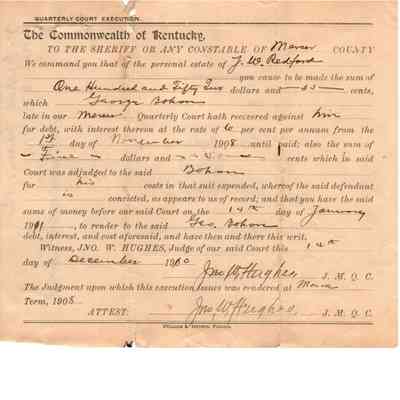 QUARTERLY COURT EXECUTION.
The Commonwealth of Kentucky,
TO THE SHERIFF OR ANY CONSTABLE OF Mercer COUNTY
We command you that of the personal estate of J. W. Redford
you cause to be made the sum of
One Hundred and Fifty Two dollars and —55— cents,
which George Bohon
late in our Mercer Quarterly Court hath recovered against him
for debt, with interest thereon at the rate of 6 per cent per annum from the
1st day of November 1908 until paid; also the sum of
Five dollars and cents which in said
Court was adjudged to the said Bohon
for his costs in that suit expended, whereof the said defendant
is convicted, as appears to us of record; and that you have the said
sums of money before our said Court on the 14th day of January
1911, to render to the said Geo. Bohon
debt, interest, and cost aforesaid, and have then and there this writ.
Witness, JNO. W. HUGHES, Judge of our said Court this 14th
day of December 1910
Jno W Hughes J. M. Q. C.
The Judgment upon which this execution issues was rendered at
Term, 1908
ATTEST: Jno. W. Hughes, J. M. Q. C.